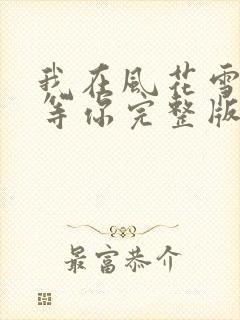 我在風花雪
等你完整版
最富恭介